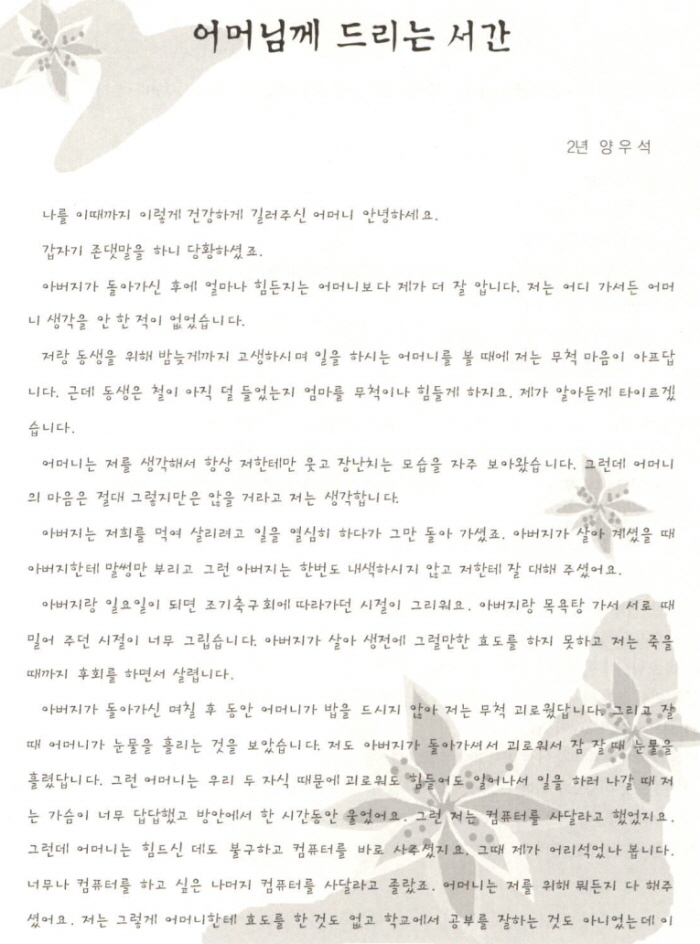 어머님께 드리는 서간
2년 양우석
나를 이때까지 이렇게 건강하게 길러주신 어머니 안녕하세요.
갑자기 존댓말을 하니 당황하셨죠.
아버지가 돌아가신 후에 얼마나 힘든지는 어머니보다 제가 더 잘 압니다. 저는 어디 가서든 어머
니 생각을 안 한 적이 없었습니다.
저랑 동생을 위해 밤늦게까지 고생하시며 일을 하시는 어머니를 볼 때에 저는 무척 마음이 아프답
니다. 근데 동생은 철이 아직 덜 들었는지 엄마를 무척이나 힘들게 하지요. 제가 알아듣게 타이르겠
습니다.
어머니는 저를 생각해서 항상 저한테만 웃고 장난치는 모습을 자주 보아왔습니다. 그런데 어머니
의 마음은 절대 그렇지만은 않을 거라고 저는 생각합니다.
아버지는 저희를 먹여 살리려고 일을 열심히 하다가 그만 돌아 가셨죠. 아버지가 살아 계셨을 때
아버지한테 말썽만 부리고 그런 아버지는 한번도 내색하시지 않고 저한테 잘 대해 주셨어요.
아버지랑 일요일이 되면 조기축구회에 따라가던 시절이 그리워요. 아버지랑 목욕탕 가서 서로 때
밀어 주던 시절이 너무 그립습니다. 아버지가 살아 생전에 그럴만한 효도를 하지 못하고 저는 죽을
때까지 후회를 하면서 살렵니다.
아버지가 돌아가신 며칠 후 동안 어머니가 밥을 드시지 않아 저는 무척 괴로웠답니다. 그리고 잘
때 어머니가 눈물을 흘리는 것을 보았습니다. 저도 아버지가 돌아가셔서 괴로워서 잠 잘 때 눈물을
흘렸답니다. 그런 어머니는 우리 두 자식 때문에 괴로워도 힘들어도 일어나서 일을 하러 나갈 때 저
는 가슴이 너무 답답했고 방안에서 한 시간동안 울었어요. 그런 저는 컴퓨터를 사달라고 했었지요.
그런데 어머니는 힘드신 데도 불구하고 컴퓨터를 바로 사주셨지요. 그때 제가 어리석었나 봅니다.
너무나 컴퓨터를 하고 싶은 나머지 컴퓨터를 사달라고 졸랐죠. 어머니는 저를 위해 뭐든지 다 해주
셨어요. 저는 그렇게 어머니한테 효도를 한 것도 없고 학교에서 공부를 잘하는 것도 아니었는데 이